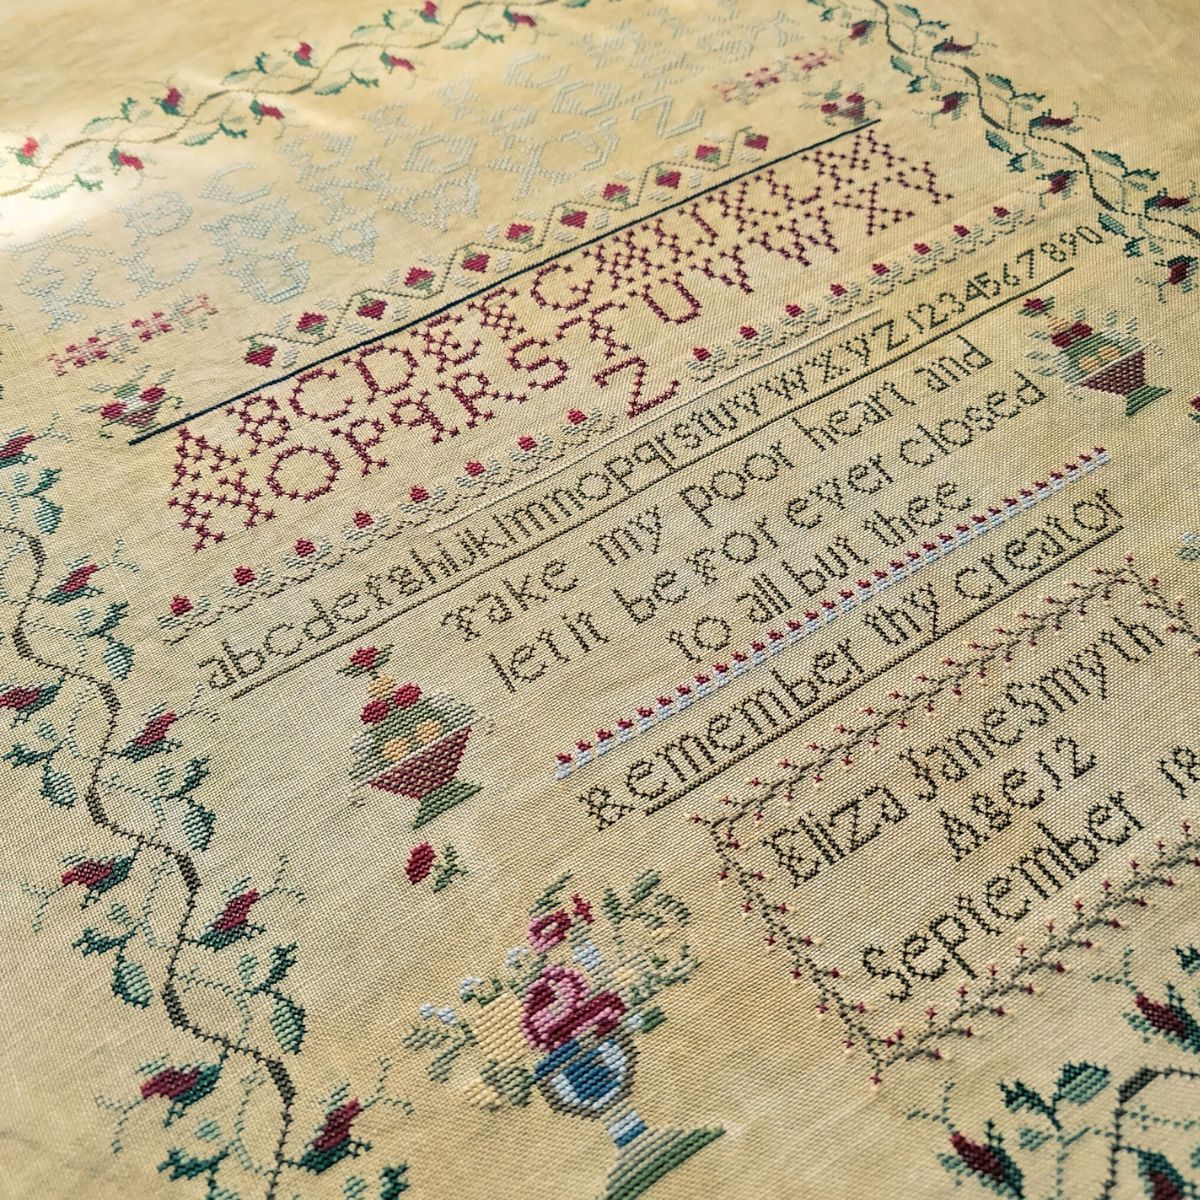 ABCDEFGHIJKLM
NOPQRSTUVWXY
Z
abcdefghijklmnopqrstuvwxyz1234567890
Take my poor heart and
let it be For ever closed
to all but thee
Remember thy creator
Eliza Jane Smyth
Age 12
September 18